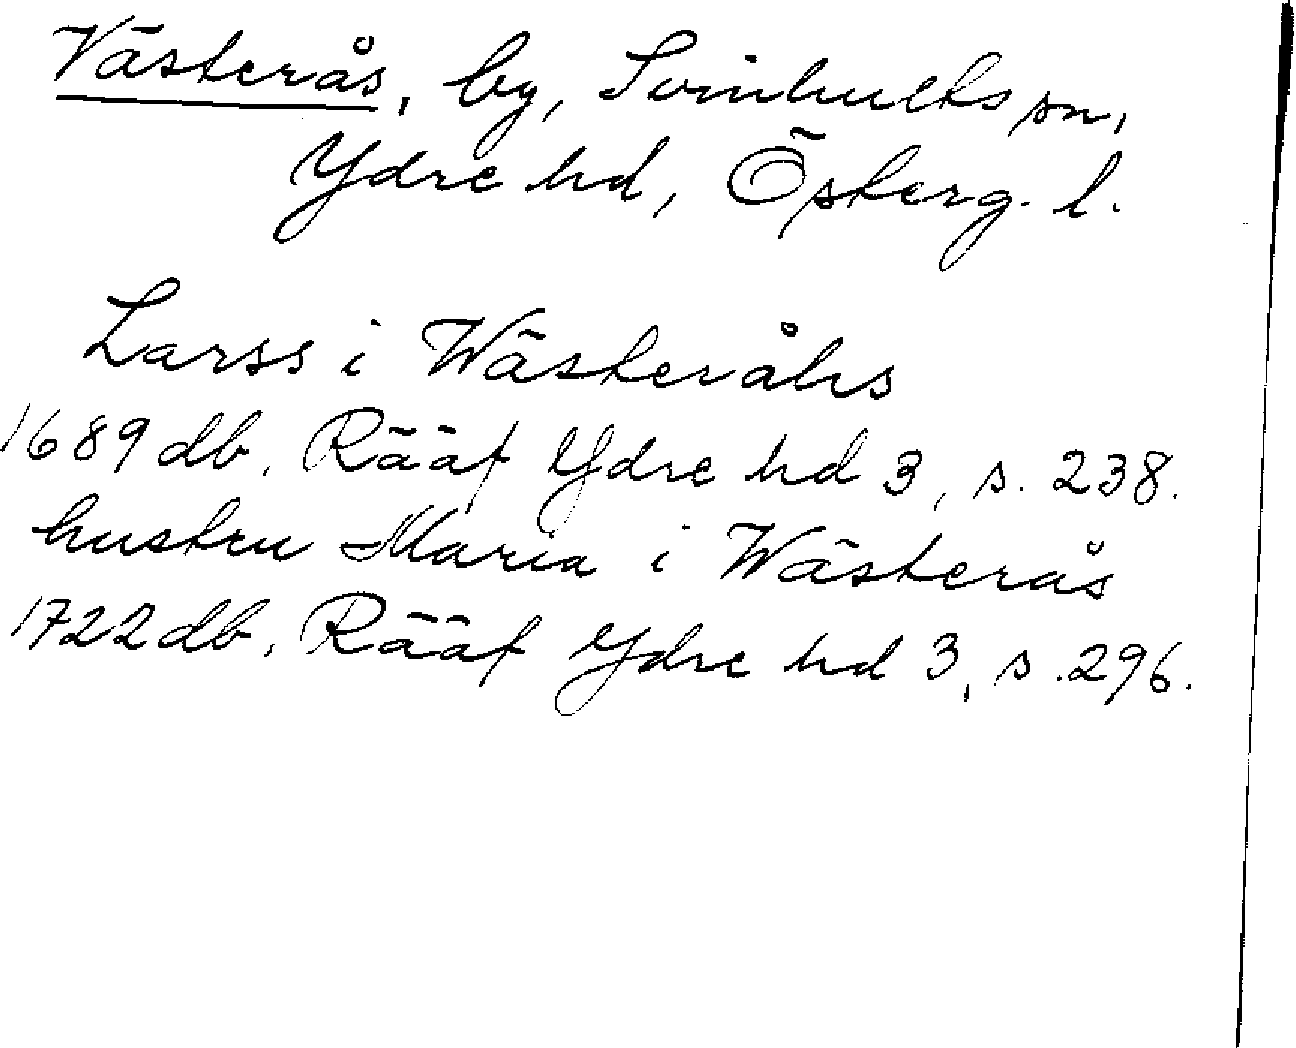 Västerås, by, Svinhults sn,
Ydre hd, Österg. l.
Larss i Wästeråhs
1689 db. Rääf Ydre hd 3, s. 238.
hustru Maria i Wästerås
1722 db. Rääf Ydre hd 3, s. 296.